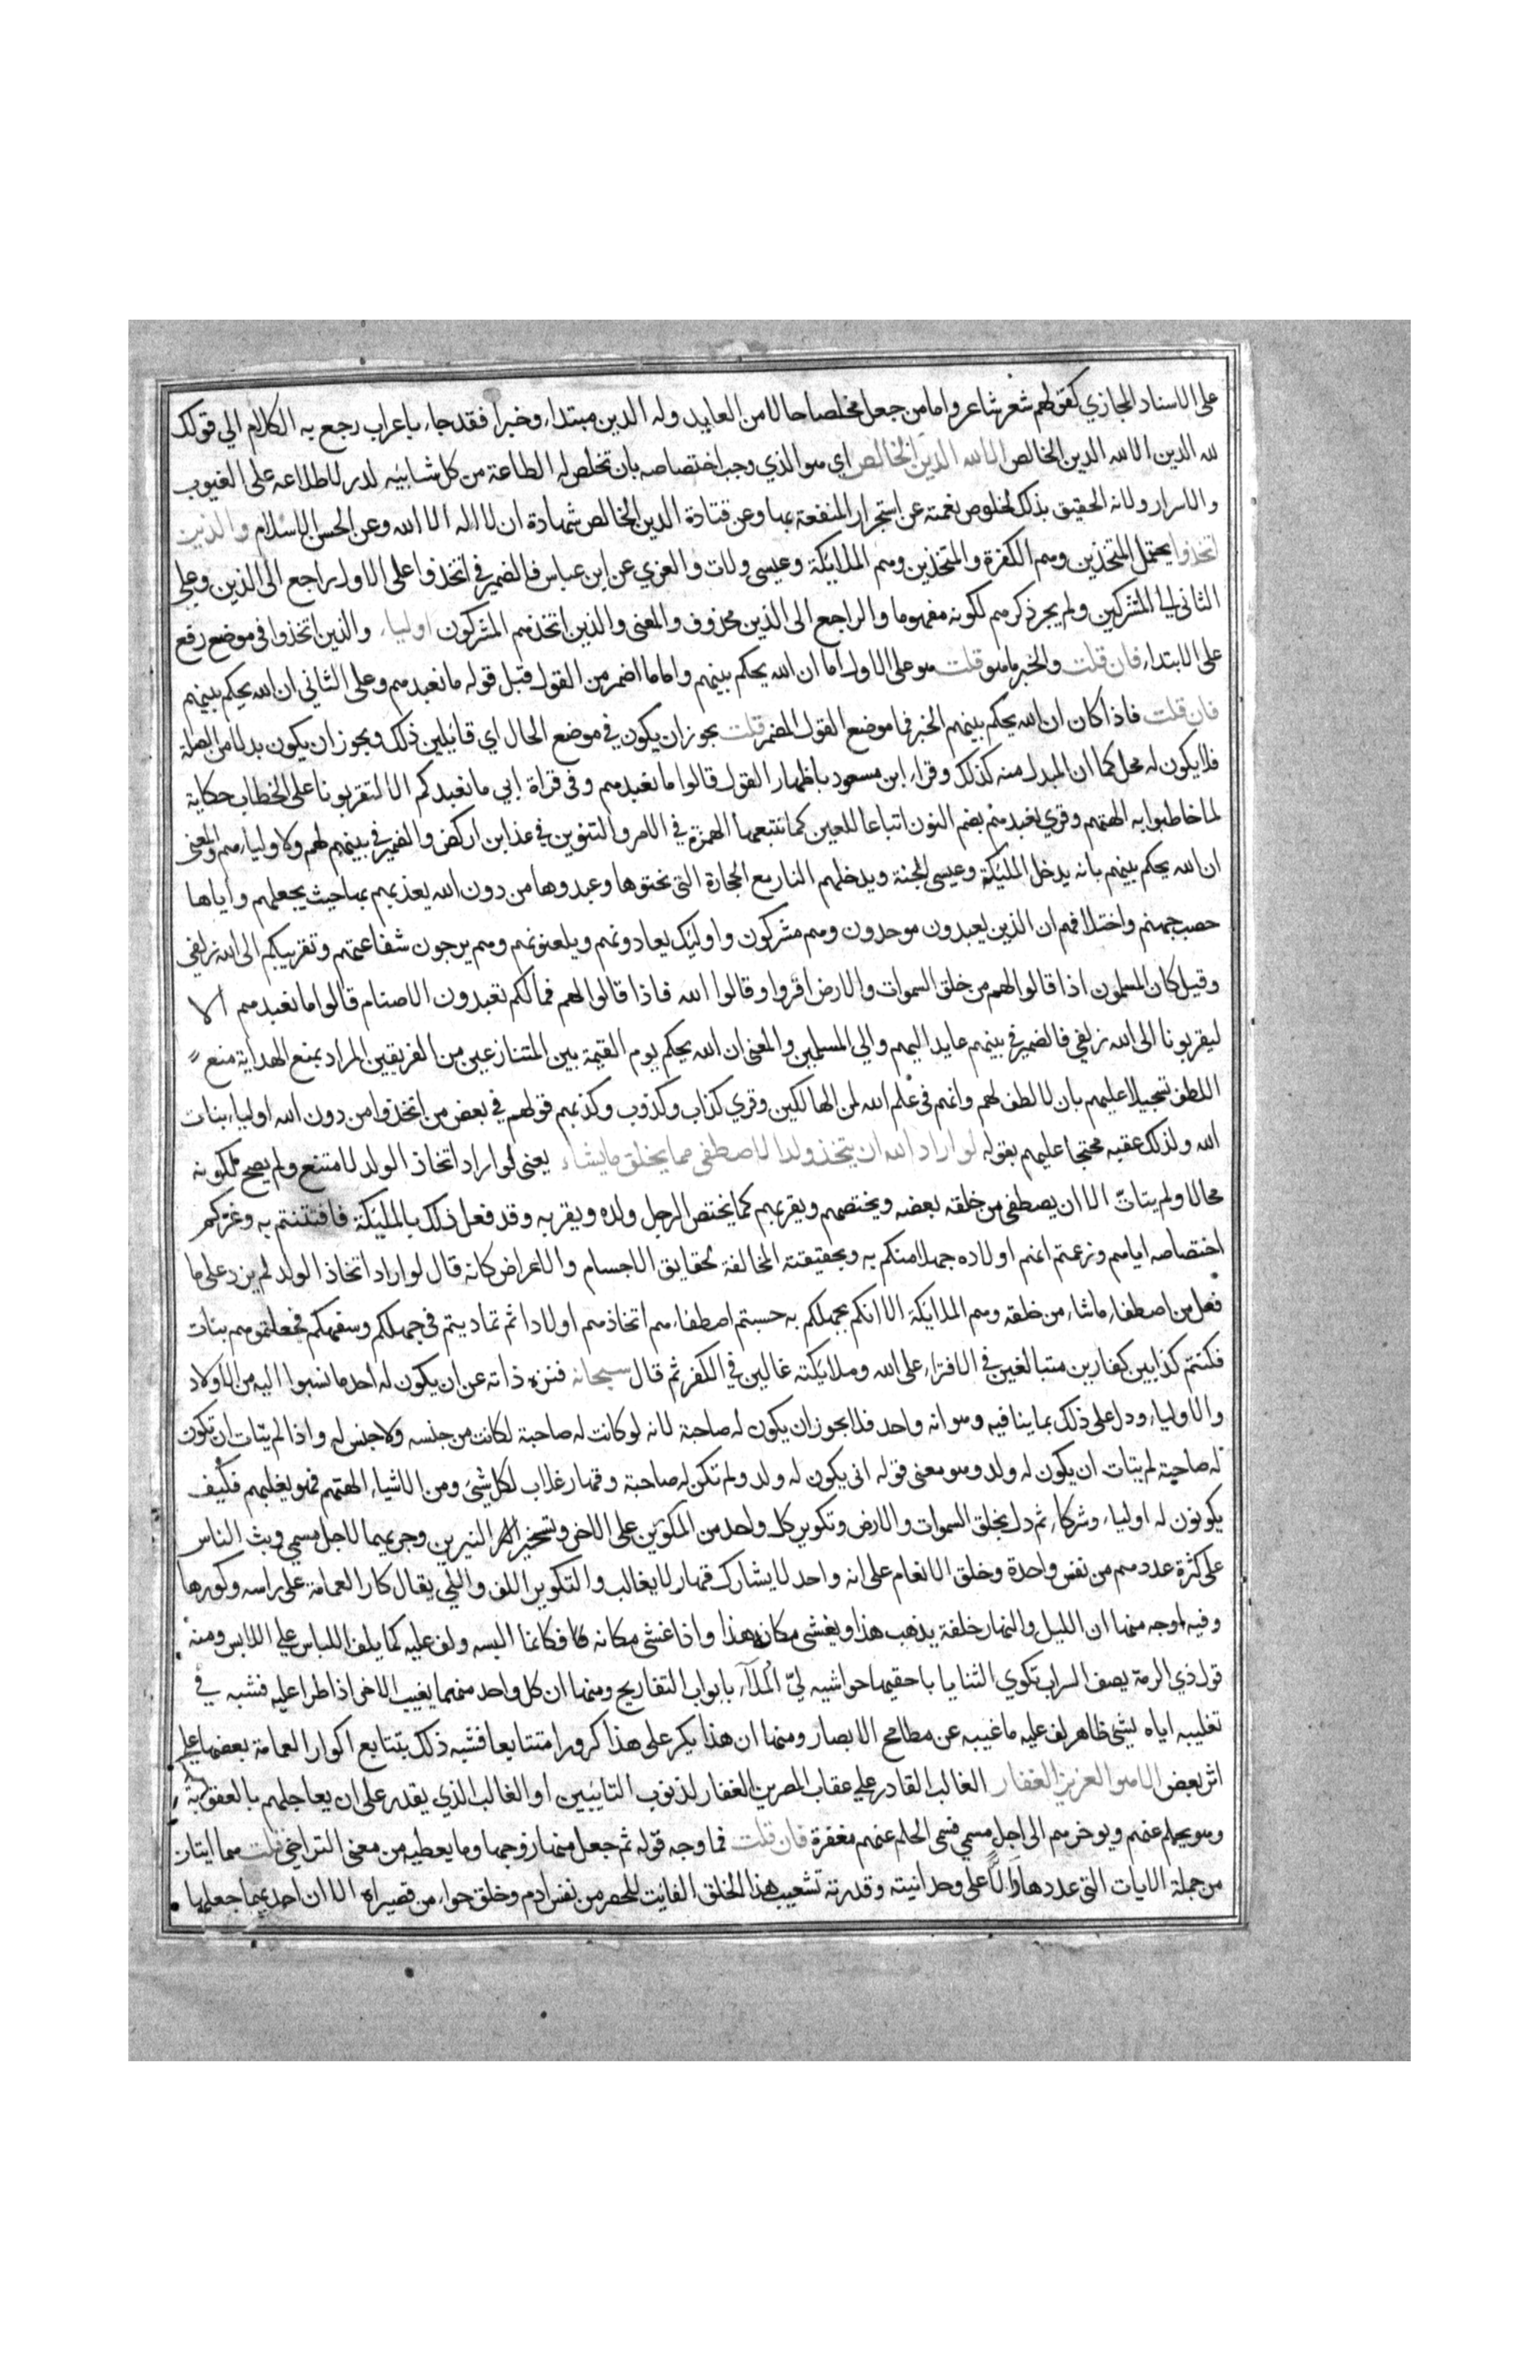 على الاسناد المجازي كقولهم شعر شاعر واما من جعل مخلصا حالا من العابد وله الدين مبتداء وخبرا فقد جاء باعراب رجع به الكلام الي قولك
لله الدين الا لله الدين الخالص الا لله الدين الخالص اي هو الذي وجب اختصاصه بان تخلص له الطاعة من كل شايبه كدر لاطلاعه على الغيوب
والاسرار ولانه الحقيق بذلك لخلوص نعمته عن استجرار المنفعة بها وعن قتادة الدين الخالص شهادة ان لا اله الا الله وعن الحسن الاسلام والذين
اتخذوا يحتمل المتخذين وهم الكفرة والمتخذين وهم الملايكة وعيسى ولات والعزي عن ابن عباس فالضمير في اتخذوا على الاول راجع الى الذين وعلى
الثاني الى المشركين ولم يجر ذكرهم لكونه مفهوما والراجع الى الذين محذوف والمعنى والذين اتخذهم المشركون اولياء والذين اتخذوا في موضع رفع
على الابتداء فان قلت والخبر ما هو قلت هو على الاول اما ان الله يحكم بينهم واما ما اضمر من القول قبل قوله ما نعبدهم وعلى الثاني ان الله يحكم بينهم
فان قلت فاذا كان ان الله يحكم بينهم الخبر فما موضع القول المضمر قلت يجوز ان يكون في موضع الحال اي قايلين ذلك ويجوز ان يكون بدلا من الصلة
فلا يكون له محل كما ان المبدل منه كذلك وقراء ابن مسعود باظهار القول قالوا ما نعبدهم وفي قراة ابي ما نعبدكم الا لتقربونا على الخطاب حكاية
لما خاطبوا به الهتهم وقري نعبدهم بضم النون اتباعا للعين كما تتبعها الهمزة في الامر والتنوين في عذابن اركض والضمير في بينهم لهم ولاولياءهم والمعنى
ان الله يحكم بينهم بانه يدخل المليكة وعيسى الجنة ويدخلهم النار مع الحجارة التي نحتوها وعبدوها من دون الله يعذبهم بها حيث يجعلهم واياها
حصب جهنم واختلافهم ان الذين يعبدون موحدون وهم مشركون واوليك يعادونهم ويلعنونهم وهم يرجون شفاعتهم وتقريبكم الى الله زلفي
وقيل كان المسلمون اذا قالوا لهم من خلق السموات والارض اقروا وقالوا الله فاذا قالوا لهم فما لكم تعبدون الاصنام قالوا ما نعبدهم الا
ليقربونا الى الله زلفي فالضمير في بينهم عايد اليهم والي المسلمين والمعنى ان الله يحكم يوم القيمة بين المتنازعين من الفريقين المراد بمنع الهداية منع
اللطف تسجيلا عليهم بان لا لطف لهم وانهم في علم الله لمن الهالكين وقري كذاب وكذوب وكذبهم قولهم في بعض من اتخذوا من دون الله اولياء بنات
الله ولذلك عقبه محتجا عليهم بقوله لو اراد الله ان يتخذ ولدا لاصطفى مما يخلق ما يشاء يعنى لو اراد اتخاذ الولد لامتنع ولم يصح لكونه
محالا ولم يتات الا ان يصطفى من خلقه بعضه ويختصهم ويقربهم كما يختص الرجل ولده ويقربه وقد فعل ذلك بالمليكة فافتتنتم به وغركم
اختصاصه اياهم وزعمتم انهم اولاده جهلا منكم به وبحقيقته المخالفة لحقايق الاجسام والاعراض كانه قال لو اراد اتخاذ الولد لم يزد على ما
فعل من اصطفاء ما شاء من خلقه وهم الملايكة الا انكم بجهلكم به حسبتم اصطفاءهم اتخاذهم اولادا ثم تماديتم في جهلكم وسفهكم فجعلتموهم بنات
فكنتم كذابين كفارين متبالغين في الافتراء على الله وملايكته غالين في الكفر ثم قال سبحانه فنزه ذاته عن ان يكون له احد ما نسبوا اليه من الاولاد
والاولياء ودل على ذلك بما ينافيه وهو انه واحد فلا يجوز ان يكون له صاحبة لانه لو كانت له صاحبة لكانت من جنسه ولا جنس له واذا لم يتات ان تكون
له صاحبة لم يتات ان يكون له ولد وهو معنى قوله انى يكون له ولد ولم تكن له صاحبة وقهار غلاب لكل شيئ ومن الاشياء الهتهم فهو يغلبهم فكيف
يكونون له اولياء وشركاء ثم دل بخلق السموات والارض وتكوير كل واحد من المكورين على الاخر وتسخير النيرين وجريهما لاجل مسمي وبث الناس
على كثرة عددهم من نفس واحدة وخلق الانعام على انه واحد لا يشارك قهار لا يغالب والتكوير اللف واللي يقال كار العمامة على راسه وكورها
وفيه اوجه منها ان الليل والنهار خلفة يذهب هذا ويغشى مكانه هذا واذا غشى مكانه فكانما البسه ولف عليه كما يلف اللباس على اللابس ومنه
قول ذي الرمة يصف السراب تكوي الثنايا باحقيها حواشيه لي الملاء بابواب التفاريج ومنها ان كل واحد منهما يغيب الاخر اذا طرا عليه فشبه في
تغليبه اياه بشي ظاهر لف عليه ما غيبه عن مطامح الابصار ومنها ان هذا يكر على هذا كرورا متتابعا فشبه ذلك بتتابع اكوار العمامة بعضها على
اثر بعض الا هو العزيز الغفار الغالب القادر على عقاب المصرين الغفار لذنوب التايبين او الغالب الذي يقدر على ان يعاجلهم بالعقوبة
وهو يحلم عنهم ويوخرهم الى اجل مسمي فسمى الحلم عنهم مغفرة فان قلت فما وجه قوله ثم جعل منها زوجها وما يعطيه من معنى التراخي قلت هما ايتان
من جملة الايات التي عددها دالا على وحدانيته وقدرته تشعيب هذا الخلق الفايت للحصر من نفس ادم وخلق حواء من قصيراه الا ان احديهما جعلها